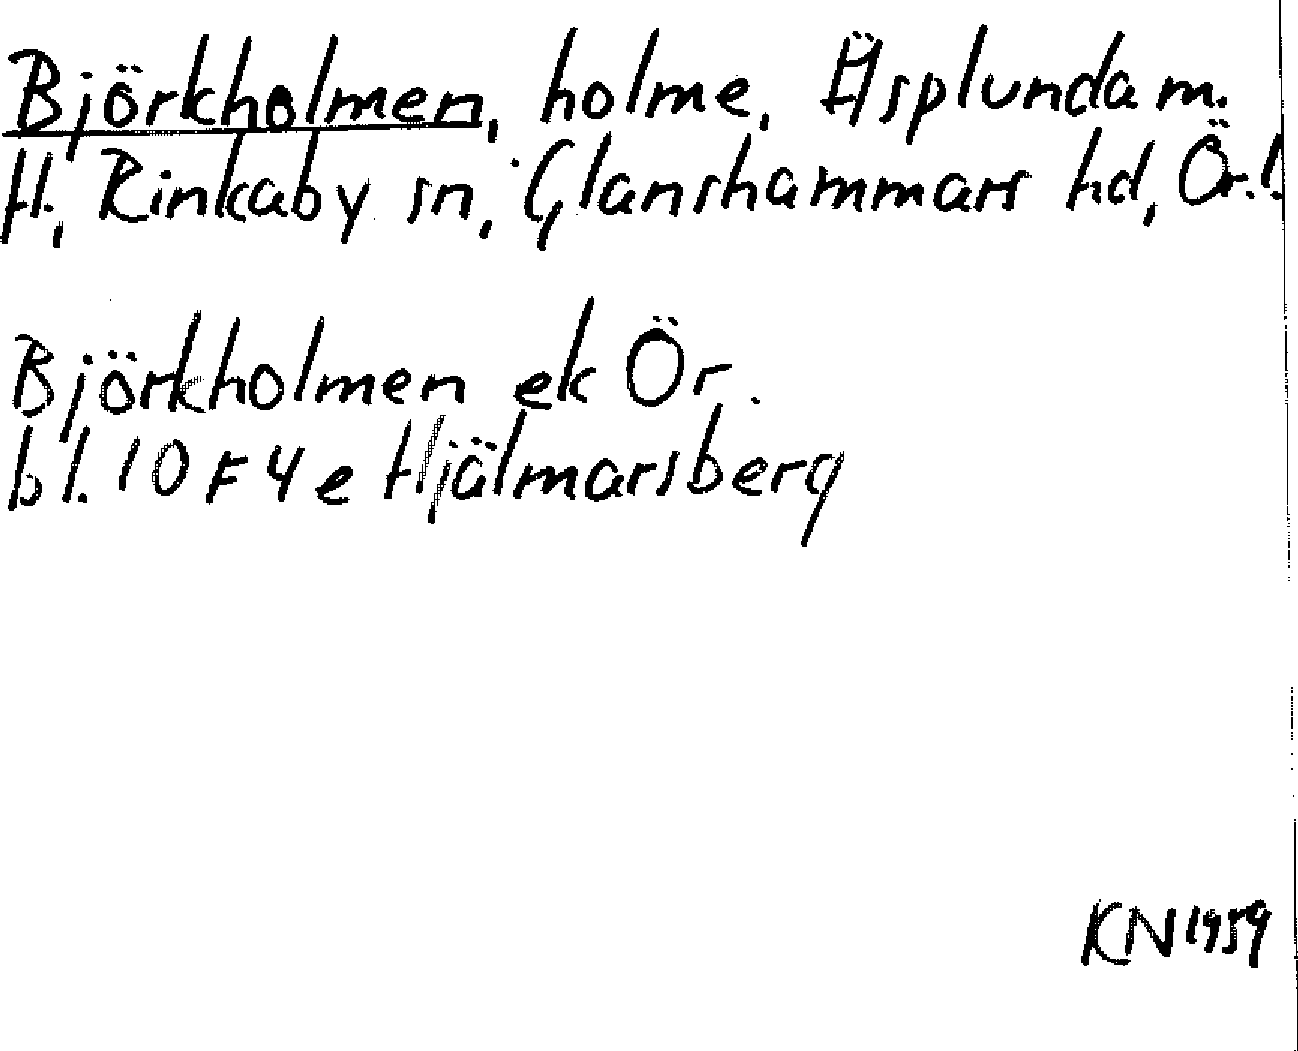 Björkholmen, holme, Äsplunda m.
fl., Rinkaby sn, Glanshammars hd, Ör.l.
Björkholmen ek Ör.
bl. 10F4e Hjälmarsberg
KN 1959